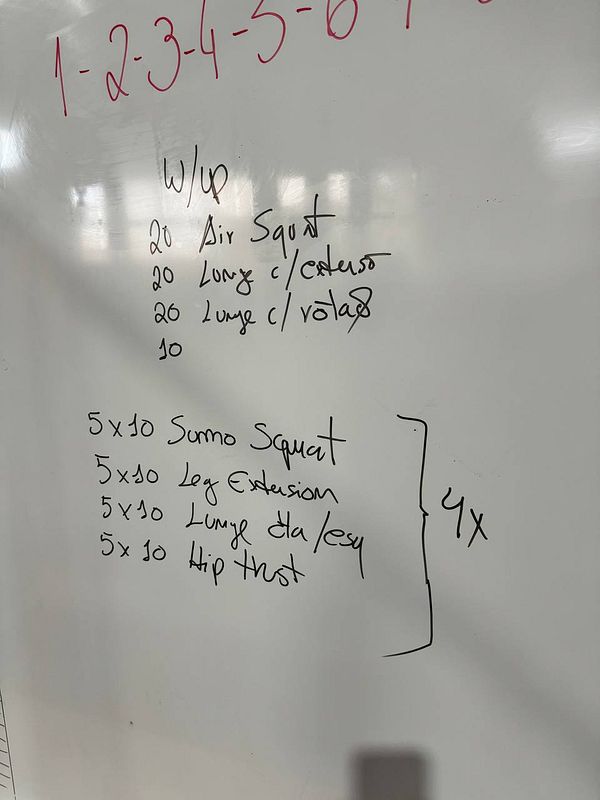 1-2-3-4-5-6
W/up
20 Air Squat
20 Lunge c/extensão
20 Lunge c/rotação
10
5x10 Sumo Squat
5x10 Leg Extension
5x10 Lunge dta/esq
5x10 Hip trust
4x